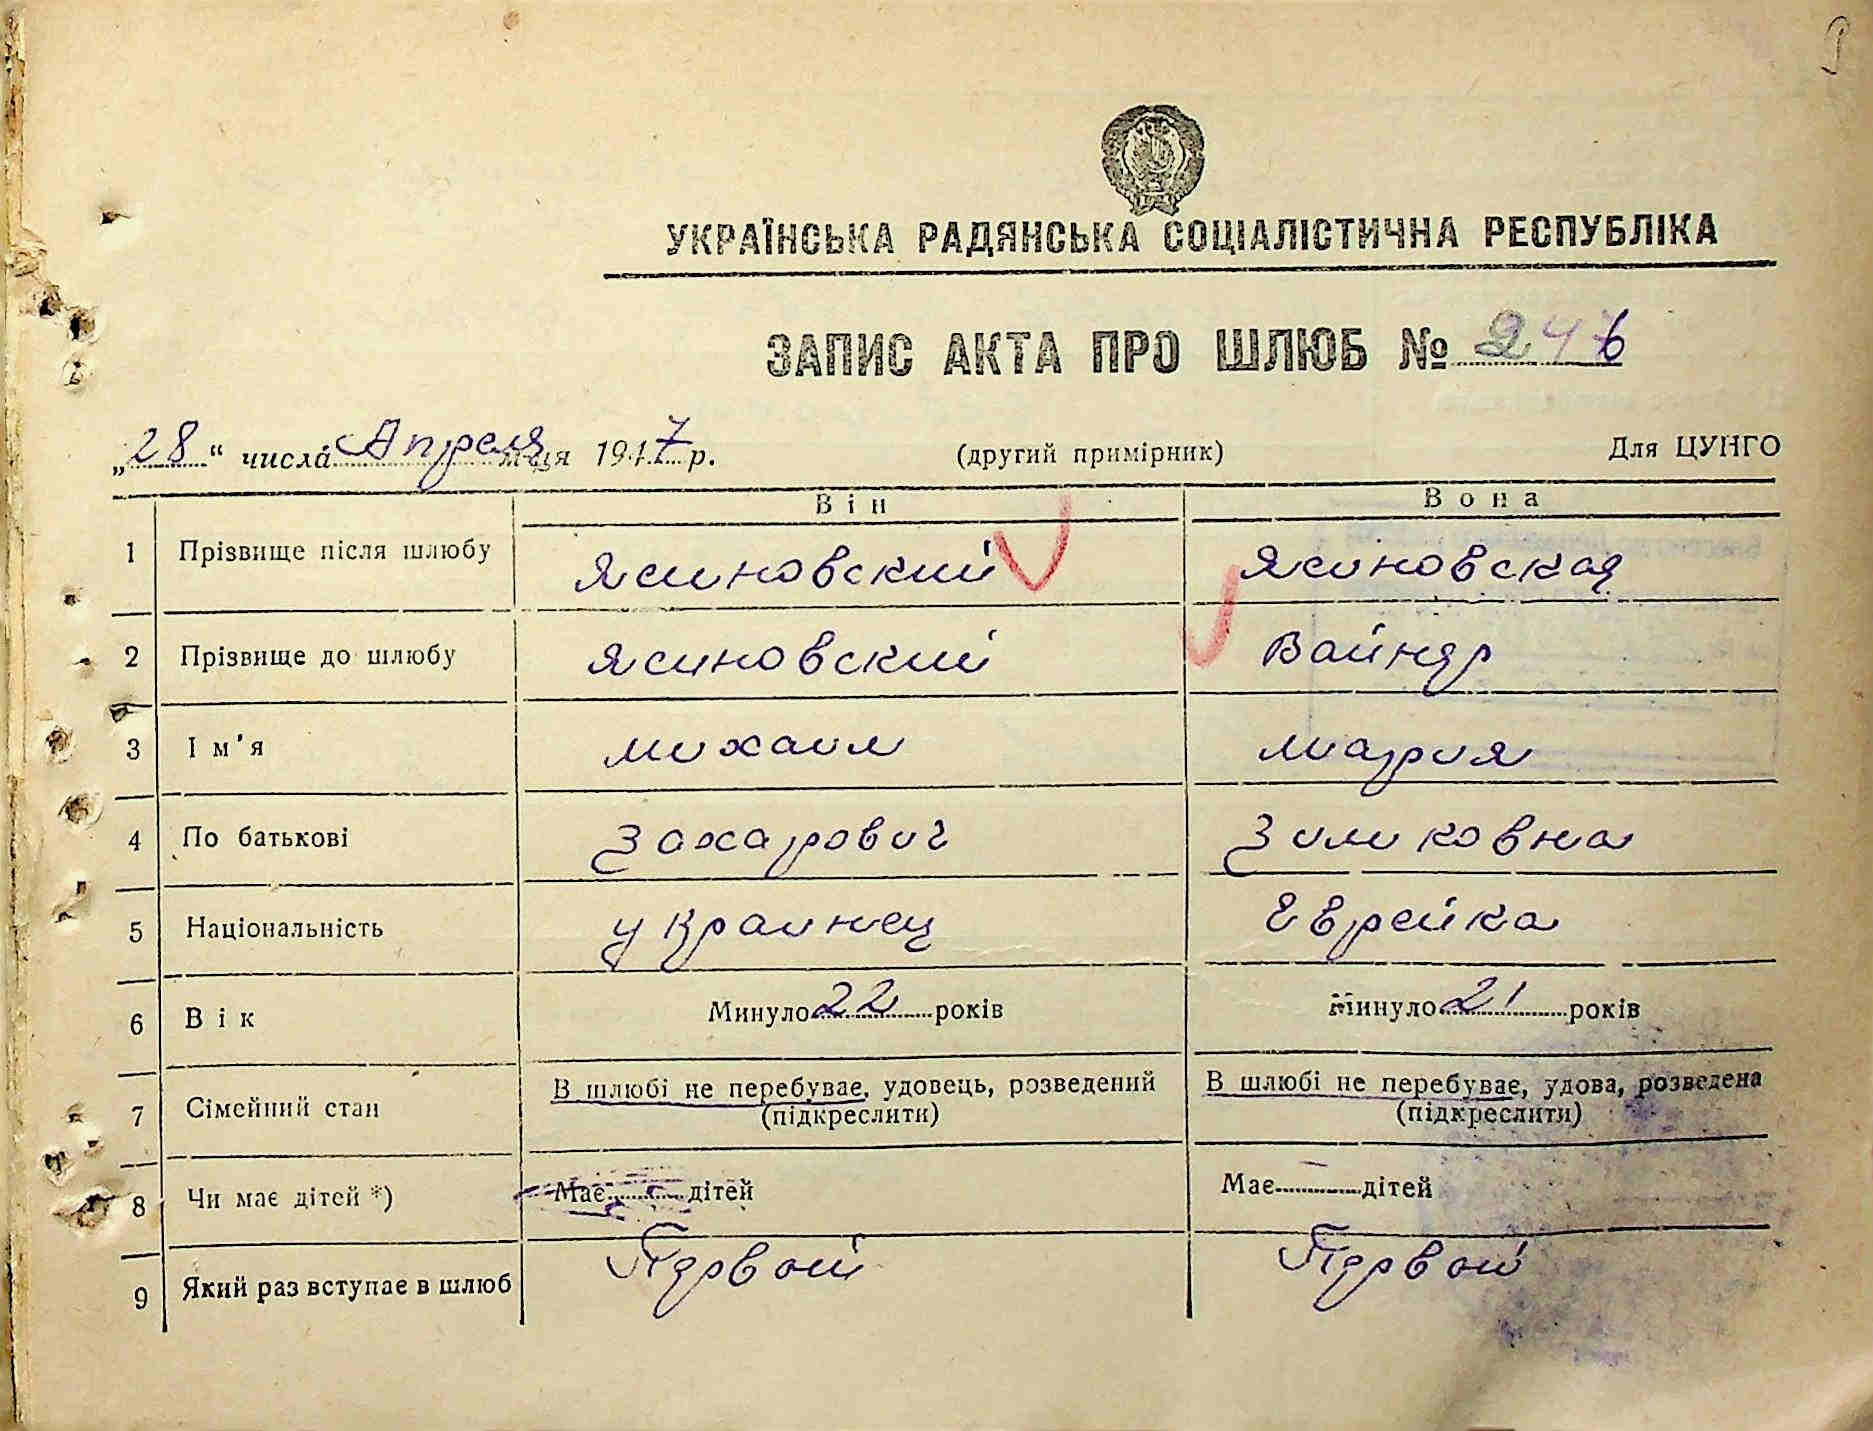 УКРАЇНСЬКА РАДЯНСЬКА СОЦІАЛІСТИЧНА РЕСПУБЛІКА
ЗАПИС АКТА ПРО ШЛЮБ № 246
„28“ числа Апреля м-ця 1947 р. (другий примірник) Для ЦУНГО
Він Вона
1 Прізвище після шлюбу Ясиновский Ясиновская
2 Прізвище до шлюбу Ясиновский Вайнер
3 Ім'я Михаил Мария
4 По батькові Захарович Зиликовна
5 Національність украинец Еврейка
6 Вік Минуло 22 років Минуло 21 років
7 Сімейний стан В шлюбі не перебуває, удовець, розведений В шлюбі не перебуває, удова, розведена
(підкреслити) (підкреслити)
8 Чи має дітей *) Має дітей Має — дітей
9 Який раз вступає в шлюб Первый Первый